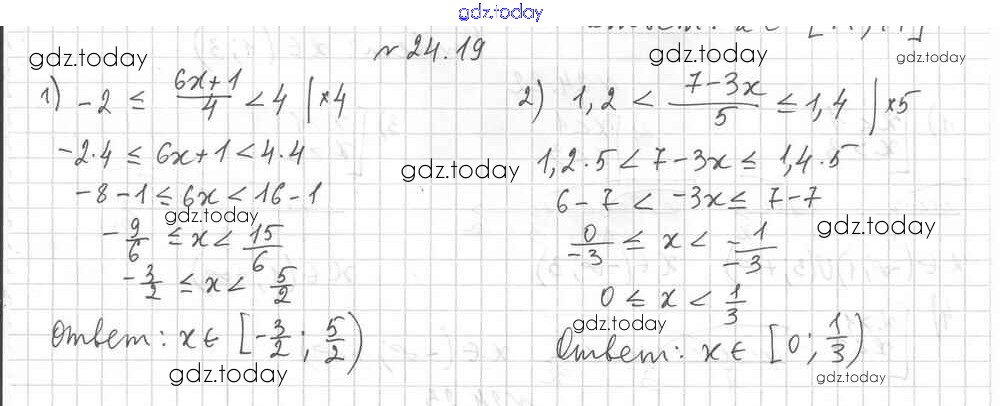 gdz.today
№ 24.19
gdz.today gdz.today
1) -2 ≤ (6x+1)/4 < 4 | ×4
-2·4 ≤ 6x+1 < 4·4
-8-1 ≤ 6x < 16-1
gdz.today
-9/6 ≤ x < 15/6
-3/2 ≤ x < 5/2
Ответ: x ∈ [-3/2; 5/2)
gdz.today
2) 1,2 < (7-3x)/5 ≤ 1,4 | ×5
gdz.today
1,2·5 < 7-3x ≤ 1,4·5
6-7 < -3x ≤ 7-7
gdz.today
0/-3 ≤ x < -1/-3
0 ≤ x < 1/3
gdz.today
Ответ: x ∈ [0; 1/3)
gdz.today